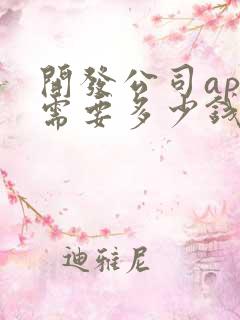 開發公司ap
需要多少錢
迪雅尼